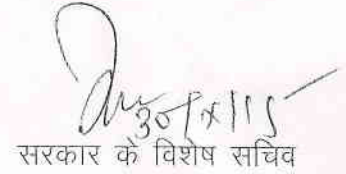 30/X/15
सरकार के विशेष सचिव